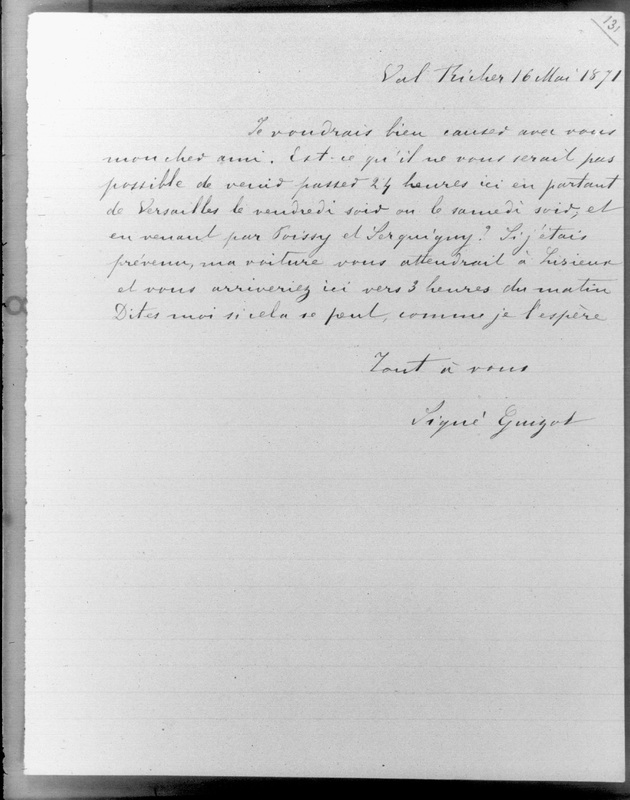 131
Val Richer 16 Mai 1871
Je voudrais bien causer avec vous
mon cher ami. Est-ce qu'il ne vous serait pas
possible de venir passer 24 heures ici en partant
de Versailles le vendredi soir ou le samedi soir, et
en venant par Poissy et Serquigny? Si j'étais
prévenu, ma voiture vous attendrait à Lisieux
et vous arriveriez ici vers 3 heures du matin
Dites moi si cela se peut, comme je l'espère
Tout à vous
Signé Guizot